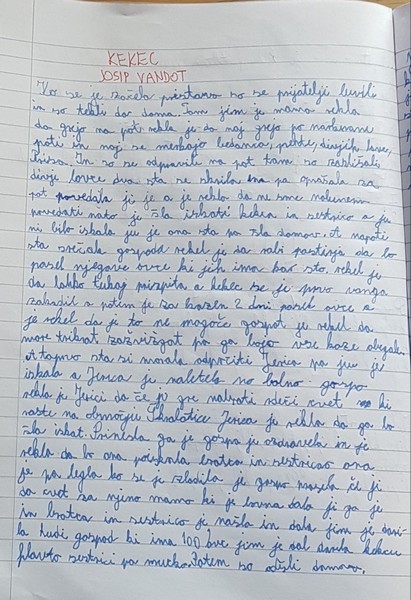 KEKEC
JOSIP VANDOT
Ko se je začela so se prijatelji
in so tekli do doma. Tam jim je mama rekla
da grejo na pot rekla je da naj grejo po
poti in naj se bedanca, pehte, divjih
In so se odpravili na pot tam so zaslišali
divje lovce dva sta se skrila pa vprašala za
pot povedala ji je a je rekla da ne sme nobenemu
povedati nato je šla iskati kekca in sestrico a ju
ni bilo iskala ju je ona sta pa šla domov. A napoti
sta srečala gospoda rekel je da rabi pastirja da bo
pasel njegove ovce ki jih ima kar sto. rekel je
da lahko tukaj a kekec se je prvo
zahvalil a potem je za 2 dni pasel ovce a
je rekel da je to ne mogoče gospod je rekel da
more trikrat zazvizgat pa ga bojo vse koze
A tapravo sta si morala odpočiti Jerica pa ju je
iskala a Jerica je naletela no bolno gospo
rekla je Jerici da če ji gre nabrati rdeči cvet ki
raste na območju Jerica je rekla da ga bo
šla iskat. Prinesla ga je gospa je ozdravela in je
rekla da bo ona poiskala bratca in sestrico ona
je pa legla ko se je zbudila je gospo prosila če ji
da cvet za njeno mamo ki je bolna dala ji ga je
in bratca in sestrico je našla in dala jim je
la hudi gospod ki ima 100 ovc jim je dal kekcu
flavto sestrici pa mucko. Potem so odšli domov.